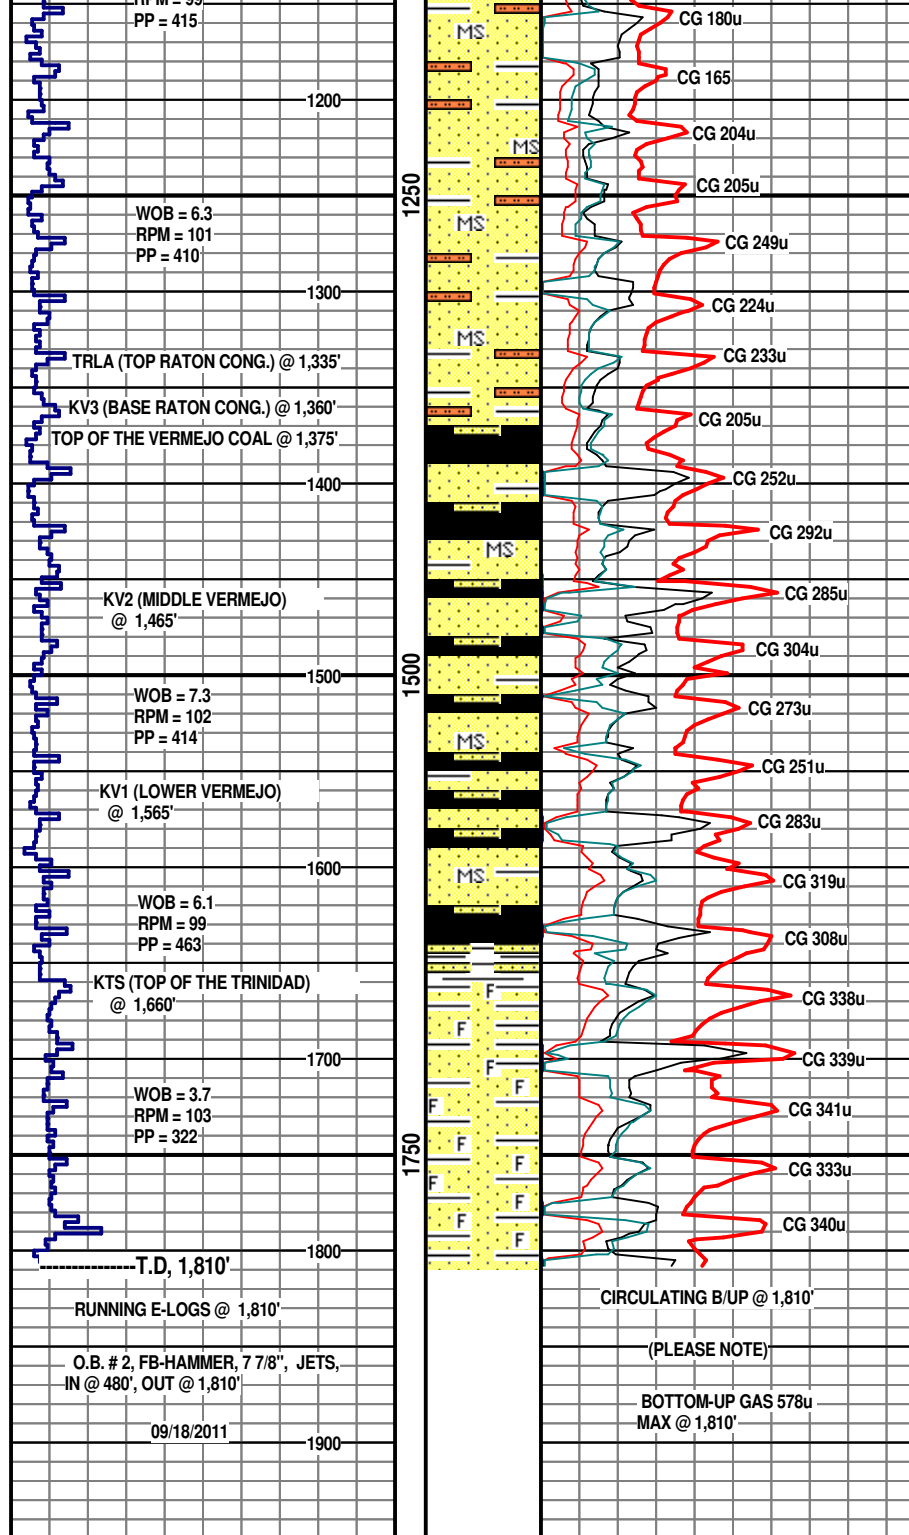 RPM = 99
PP = 415
1200
WOB = 6.3
RPM = 101
PP = 410
1300
TRLA (TOP RATON CONG.) @ 1,335'
KV3 (BASE RATON CONG.) @ 1,360'
TOP OF THE VERMEJO COAL @ 1,375'
1400
KV2 (MIDDLE VERMEJO)
@ 1,465'
1500
WOB = 7.3
RPM = 102
PP = 414
KV1 (LOWER VERMEJO)
@ 1,565'
1600
WOB = 6.1
RPM = 99
PP = 463
KTS (TOP OF THE TRINIDAD)
@ 1,660'
1700
WOB = 3.7
RPM = 103
PP = 322
1800
---------------T.D, 1,810'
RUNNING E-LOGS @ 1,810'
O.B. # 2, FB-HAMMER, 7 7/8", JETS,
IN @ 480', OUT @ 1,810'
09/18/2011
1900
1250
1500
1750
MS
MS
MS
MS
MS
MS
MS
F
F
F
F
F
F
F
F
F
F
F
F
CG 180u
CG 165
CG 204u
CG 205u
CG 249u
CG 224u
CG 233u
CG 205u
CG 252u
CG 292u
CG 285u
CG 304u
CG 273u
CG 251u
CG 283u
CG 319u
CG 308u
CG 338u
CG 339u
CG 341u
CG 333u
CG 340u
CIRCULATING B/UP @ 1,810'
(PLEASE NOTE)
BOTTOM-UP GAS 578u
MAX @ 1,810'